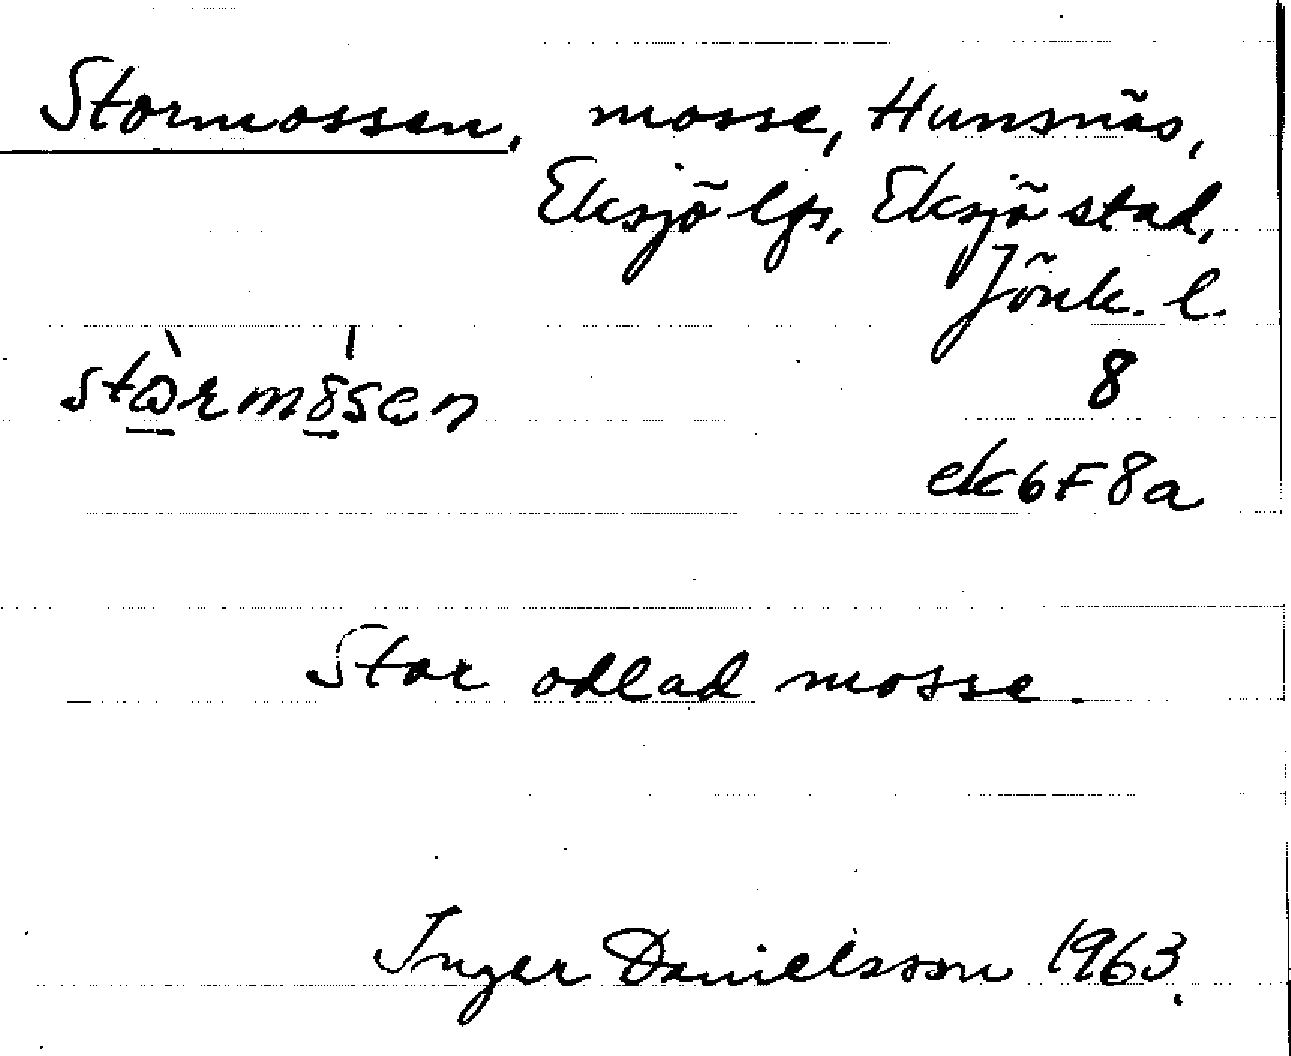 Stormossen, mosse, Hunsnäs,
Eksjö lfs, Eksjö stad,
Jönk. l.
8
ek 6F8a
Stor odlad mosse.
Inger Danielsson 1963.